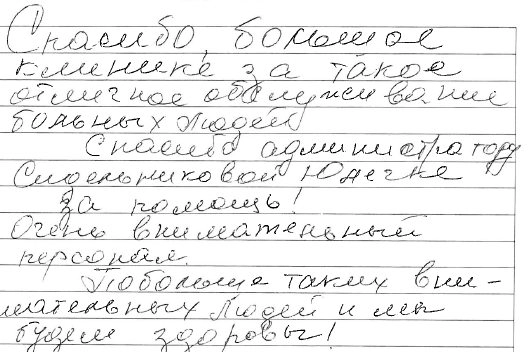 Спасибо, большое
клинике за такое
отличное обслуживание
больных людей
Спасибо администратору
Юлечке
за помощь!
Очень внимательный
персонал.
Побольше таких вни-
мательных людей и мы
будем здоровы!